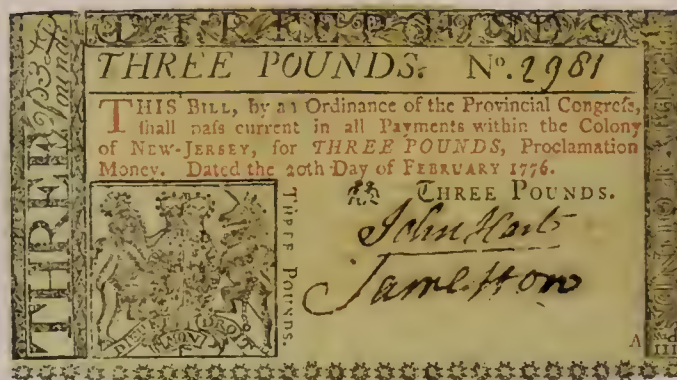 THREE POUNDS. Nº. 2981
THIS BILL, by an Ordinance of the Provincial Congreſs,
ſhall paſs current in all Payments within the Colony
of NEW-JERSEY, for THREE POUNDS, Proclamation
Money. Dated the 20th Day of FEBRUARY 1776.
THREE POUNDS.
John Hart
James How
THREE POUNDS.
THREE
DIEU MON DROIT
A
III